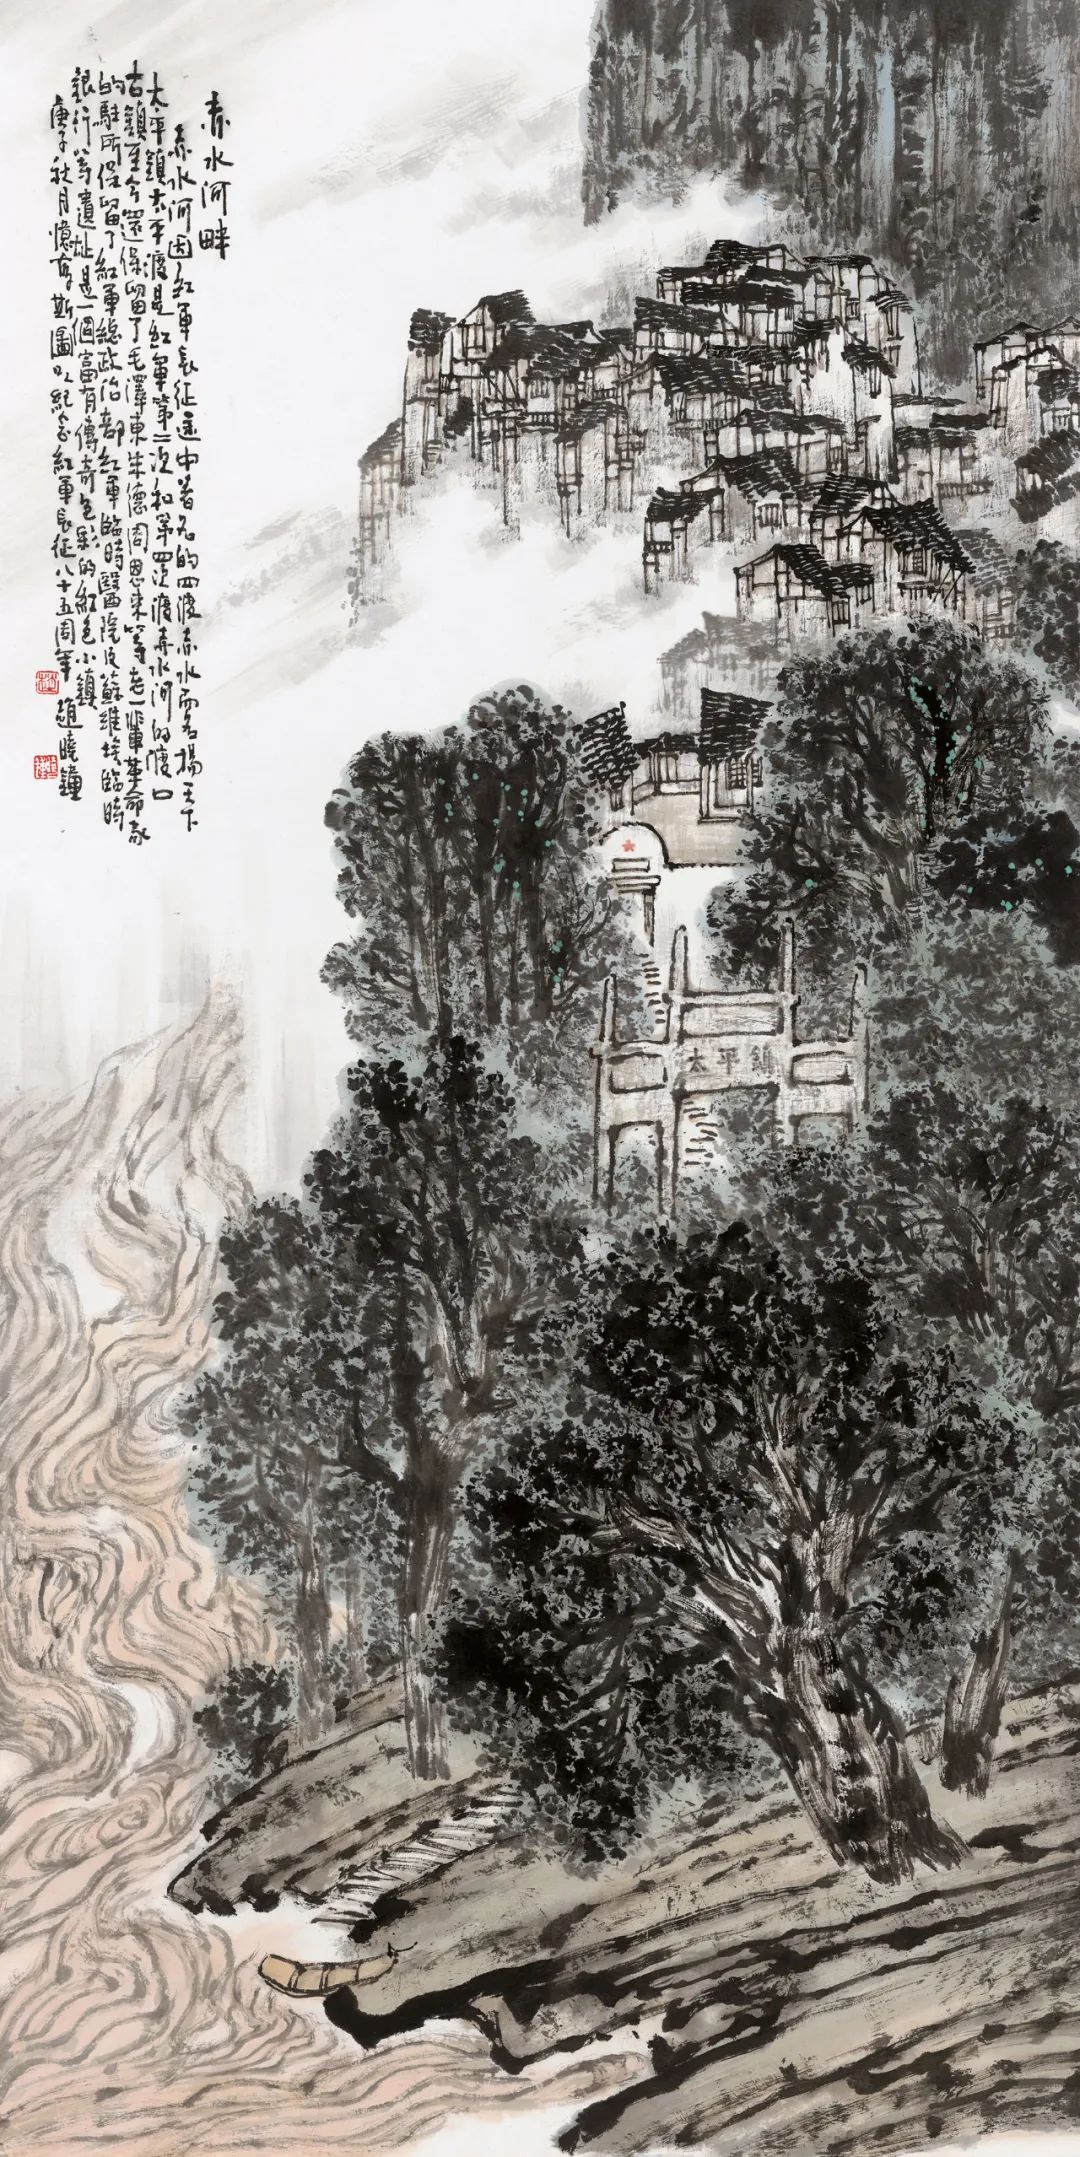 赤水河畔
赤水河因紅軍長征途中著名的四渡赤水而名揚天下
太平鎮太平渡是紅軍第二次和第四次渡赤水河的渡口
古鎮至今還保留了毛澤東朱德周恩来等老一輩革命家
的駐所保留了紅軍總政治部紅軍臨時醫院及蘇維埃臨時
銀行等遺址是一個富有傳奇色彩的紅色小鎮
庚子秋月憶寫斯圖以紀念紅軍長征八十五周年 趙曉鐘
太平鎮